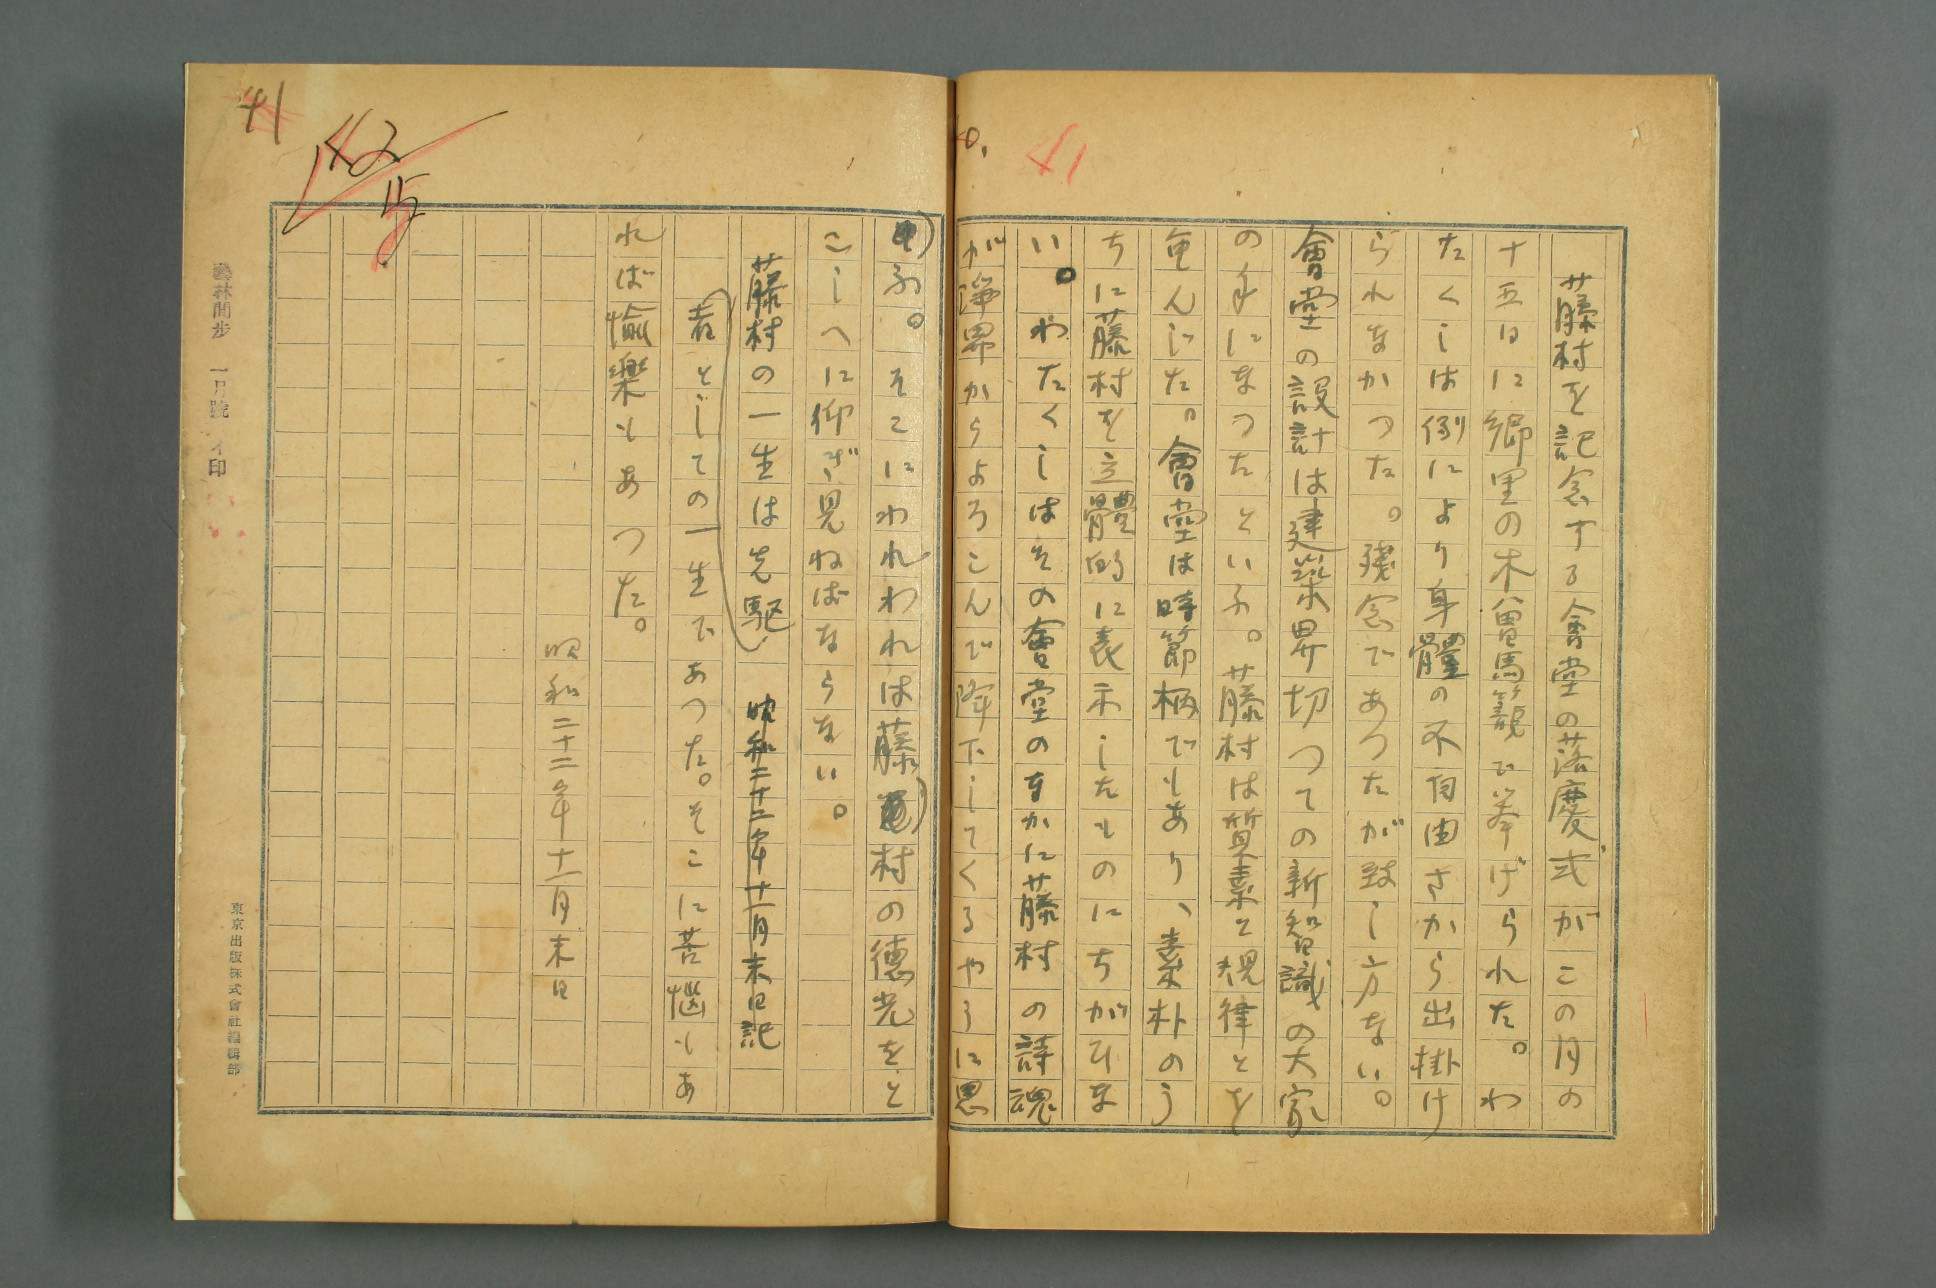 41
藤村を記念する會堂の落慶式がこの月の
十五日に郷里の木曾馬籠で挙げられた。わ
たくしは例により身體の不自由さから出掛け
られなかつた。殘念であつたが致し方ない。
會堂の設計は建築界切つての新智識の大家
の手になつたといふ。藤村は質素と規律とを
重んじた。會堂は時節柄でもあり、素朴のう
ちに藤村を立體的に表示したものにちがひな
い。わたくしはその會堂のなかに藤村の詩魂
が浄界からよろこんで降下してくるやうに思
ふ。そこにわれわれは藤村の徳光をと
こしへに仰ぎ見ねばならない。
藤村の一生は先駆
昭和二十二年十一月末日記
者としての一生であつた。そこに苦悩もあ
れば愉樂もあつた。
昭和二十二年十一月末日
41
藝林閒歩 一月號 イ印
東京出版株式會社編輯部